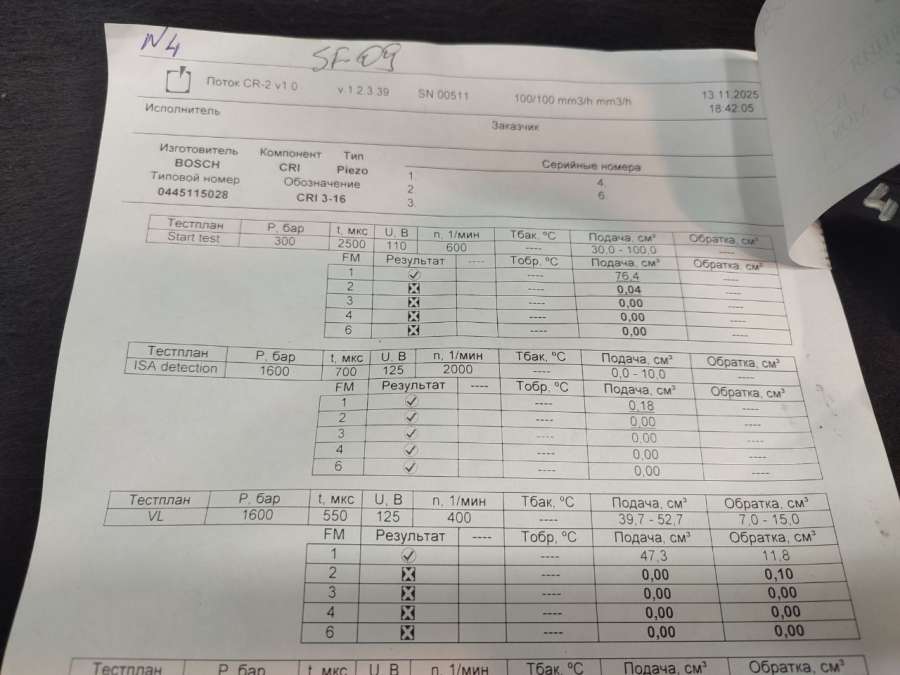 N4
SF 09
Поток CR-2 v1.0 v.1.2.3.39 SN 00511 100/100 mm3/h mm3/h 13.11.2025
18:42:05
Исполнитель Заказчик
Изготовитель Компонент Тип Серийные номера
BOSCH CRI Piezo 1. 4.
Типовой номер Обозначение 2. 6.
0445115028 CRI 3-16 3.
Тестплан P, бар t, мкс U, В n, 1/мин Тбак, ºС Подача, см³ Обратка, см³
Start test 300 2500 110 600 ---- 30,0 - 100,0 ----
FM Результат ---- Тобр, ºС Подача, см³ Обратка, см³
1 ---- 76,4 ----
2 ---- 0,04 ----
3 ---- 0,00 ----
4 ---- 0,00 ----
6 ---- 0,00 ----
Тестплан P, бар t, мкс U, В n, 1/мин Тбак, ºС Подача, см³ Обратка, см³
ISA detection 1600 700 125 2000 ---- 0,0 - 10,0 ----
FM Результат ---- Тобр, ºС Подача, см³ Обратка, см³
1 ---- 0,18 ----
2 ---- 0,00 ----
3 ---- 0,00 ----
4 ---- 0,00 ----
6 ---- 0,00 ----
Тестплан P, бар t, мкс U, В n, 1/мин Тбак, ºС Подача, см³ Обратка, см³
VL 1600 550 125 400 ---- 39,7 - 52,7 7,0 - 15,0
FM Результат ---- Тобр, ºС Подача, см³ Обратка, см³
1 ---- 47,3 11,8
2 ---- 0,00 0,10
3 ---- 0,00 0,00
4 ---- 0,00 0,00
6 ---- 0,00 0,00
Тестплан P, бар t, мкс U, В n, 1/мин Тбак, ºС Подача, см³ Обратка, см³